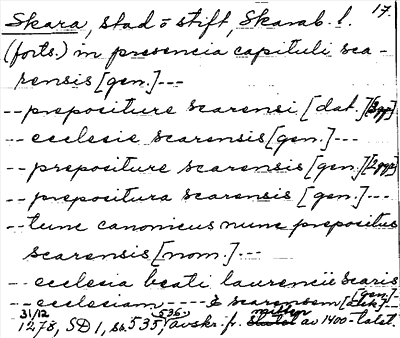 Skara, stad o stift, Skarab. l. 17.
(forts.) in presencia capituli sca-
rensis [gen.]---
--prepositure scarensi [dat.] [2ggr]
--ecclesie scarensis [gen.]---
--prepositure scarensis [gen.] [2ggr]
--prepositura scarensis [gen.]---
--tunc canonicus nunc prepositus
scarensis [nom.]---
--ecclesia beati laurencii scaris [gen.]--
--ecclesiam---- scarensem [ack.]--
31/12 1278, SD 1, s. 535, 536, avskr. fr. mitten av 1400-talet.